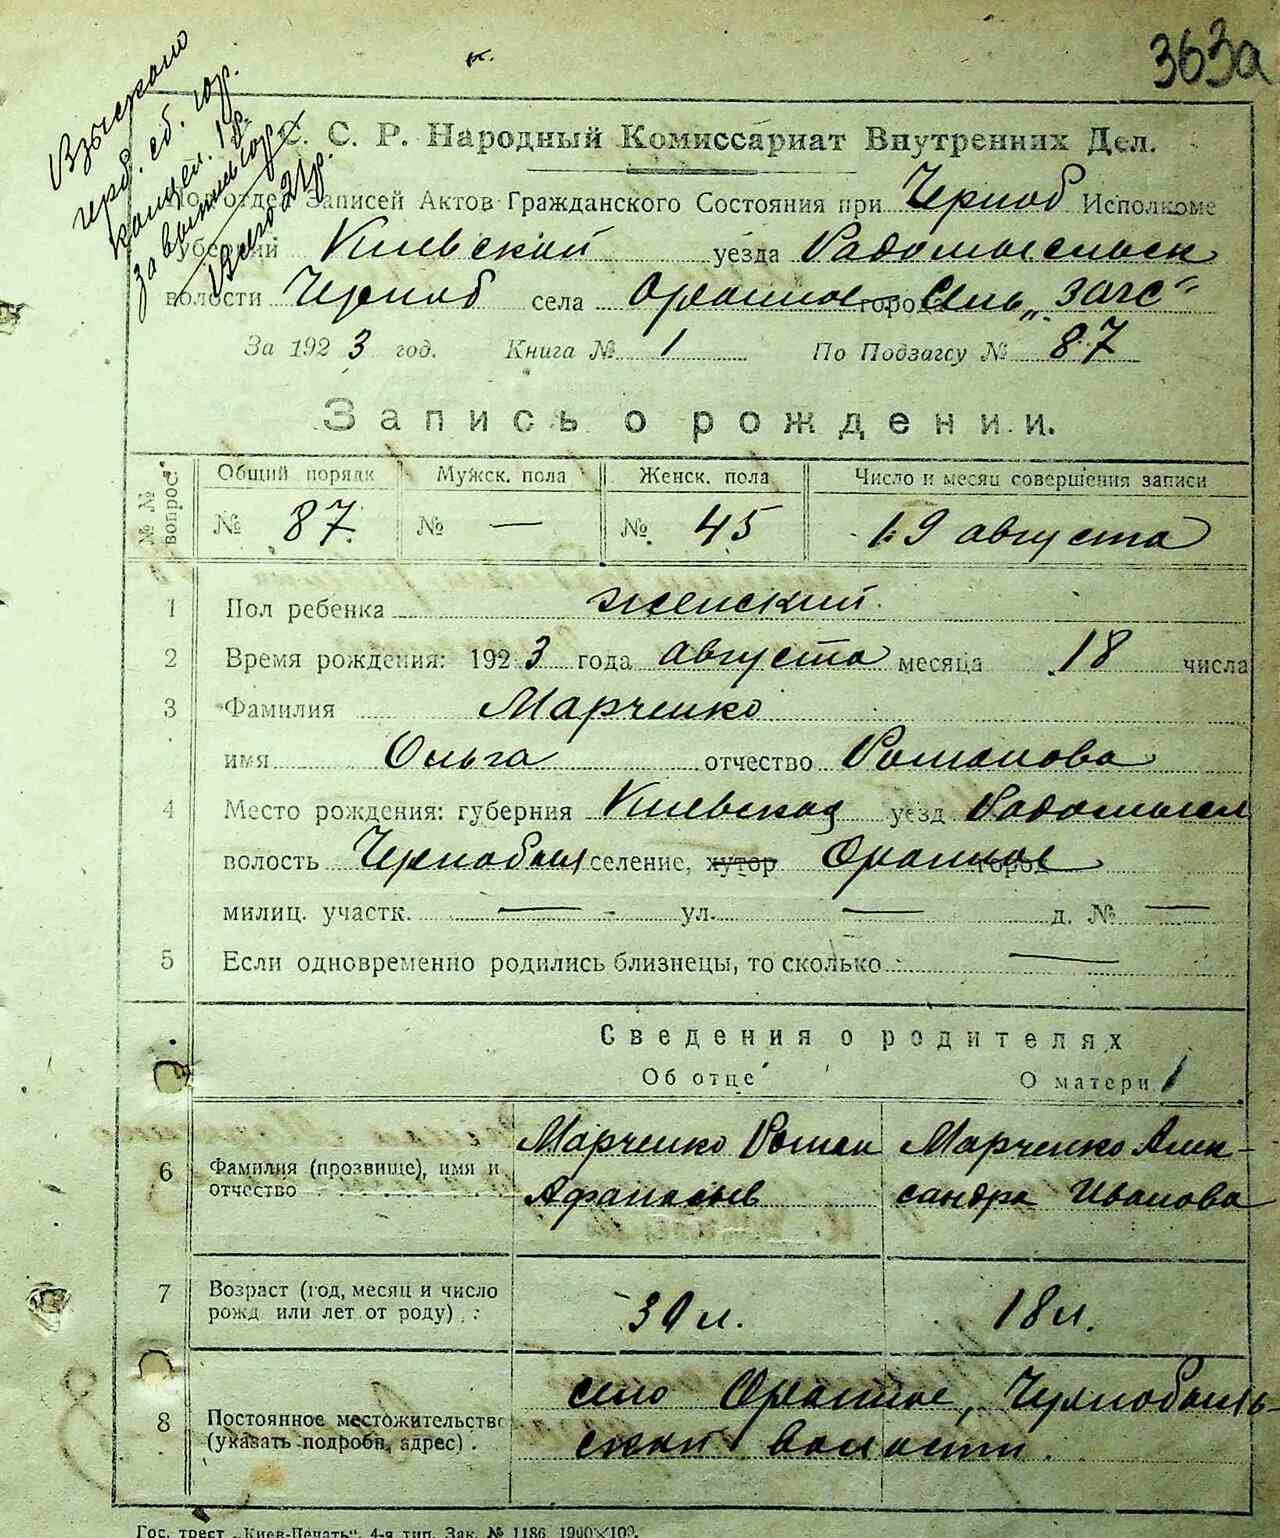 363а
Взыскано
герб. сб. 10р.
канцел. 1р.
за бланк 10р.
Всего 21р.
С. С. Р. Народный Комиссариат Внутренних Дел.
Подотдел Записей Актов Гражданского Состояния при Черноб Исполкоме
Губернии Киевской уезда Радомысльск
волости Черноб села Оранное города Сель „загс"
За 1923 год. Книга № 1 По Подзагсу № 87
Запись о рождении.
№ № вопрос. Общий порядк Мужск. пола Женск. пола Число и месяц совершения записи
№ 87 № — № 45 19 августа
1 Пол ребенка женский
2 Время рождения: 1923 года августа месяца 18 числа
3 Фамилия Марченко
имя Ольга отчество Романова
4 Место рождения: губерния Киевская уезд Радомысл
волость Чернобыл селение, хутор Оранное город
милиц. участк. — ул. — д. № —
5 Если одновременно родились близнецы, то сколько —
Сведения о родителях
Об отце О матери
6 Фамилия (прозвище), имя и отчество Марченко Роман Марченко Алек-
Афанасьев сандра Иванова
7 Возраст (год, месяц и число
рожд или лет от роду) 30 л. 18 л.
8 Постоянное местожительство село Оранное, Чернобыль-
(указать подробн, адрес) ской волости
Гос. трест „Киев-Печать", 4-я тип. Зак. № 1186 1900×100.